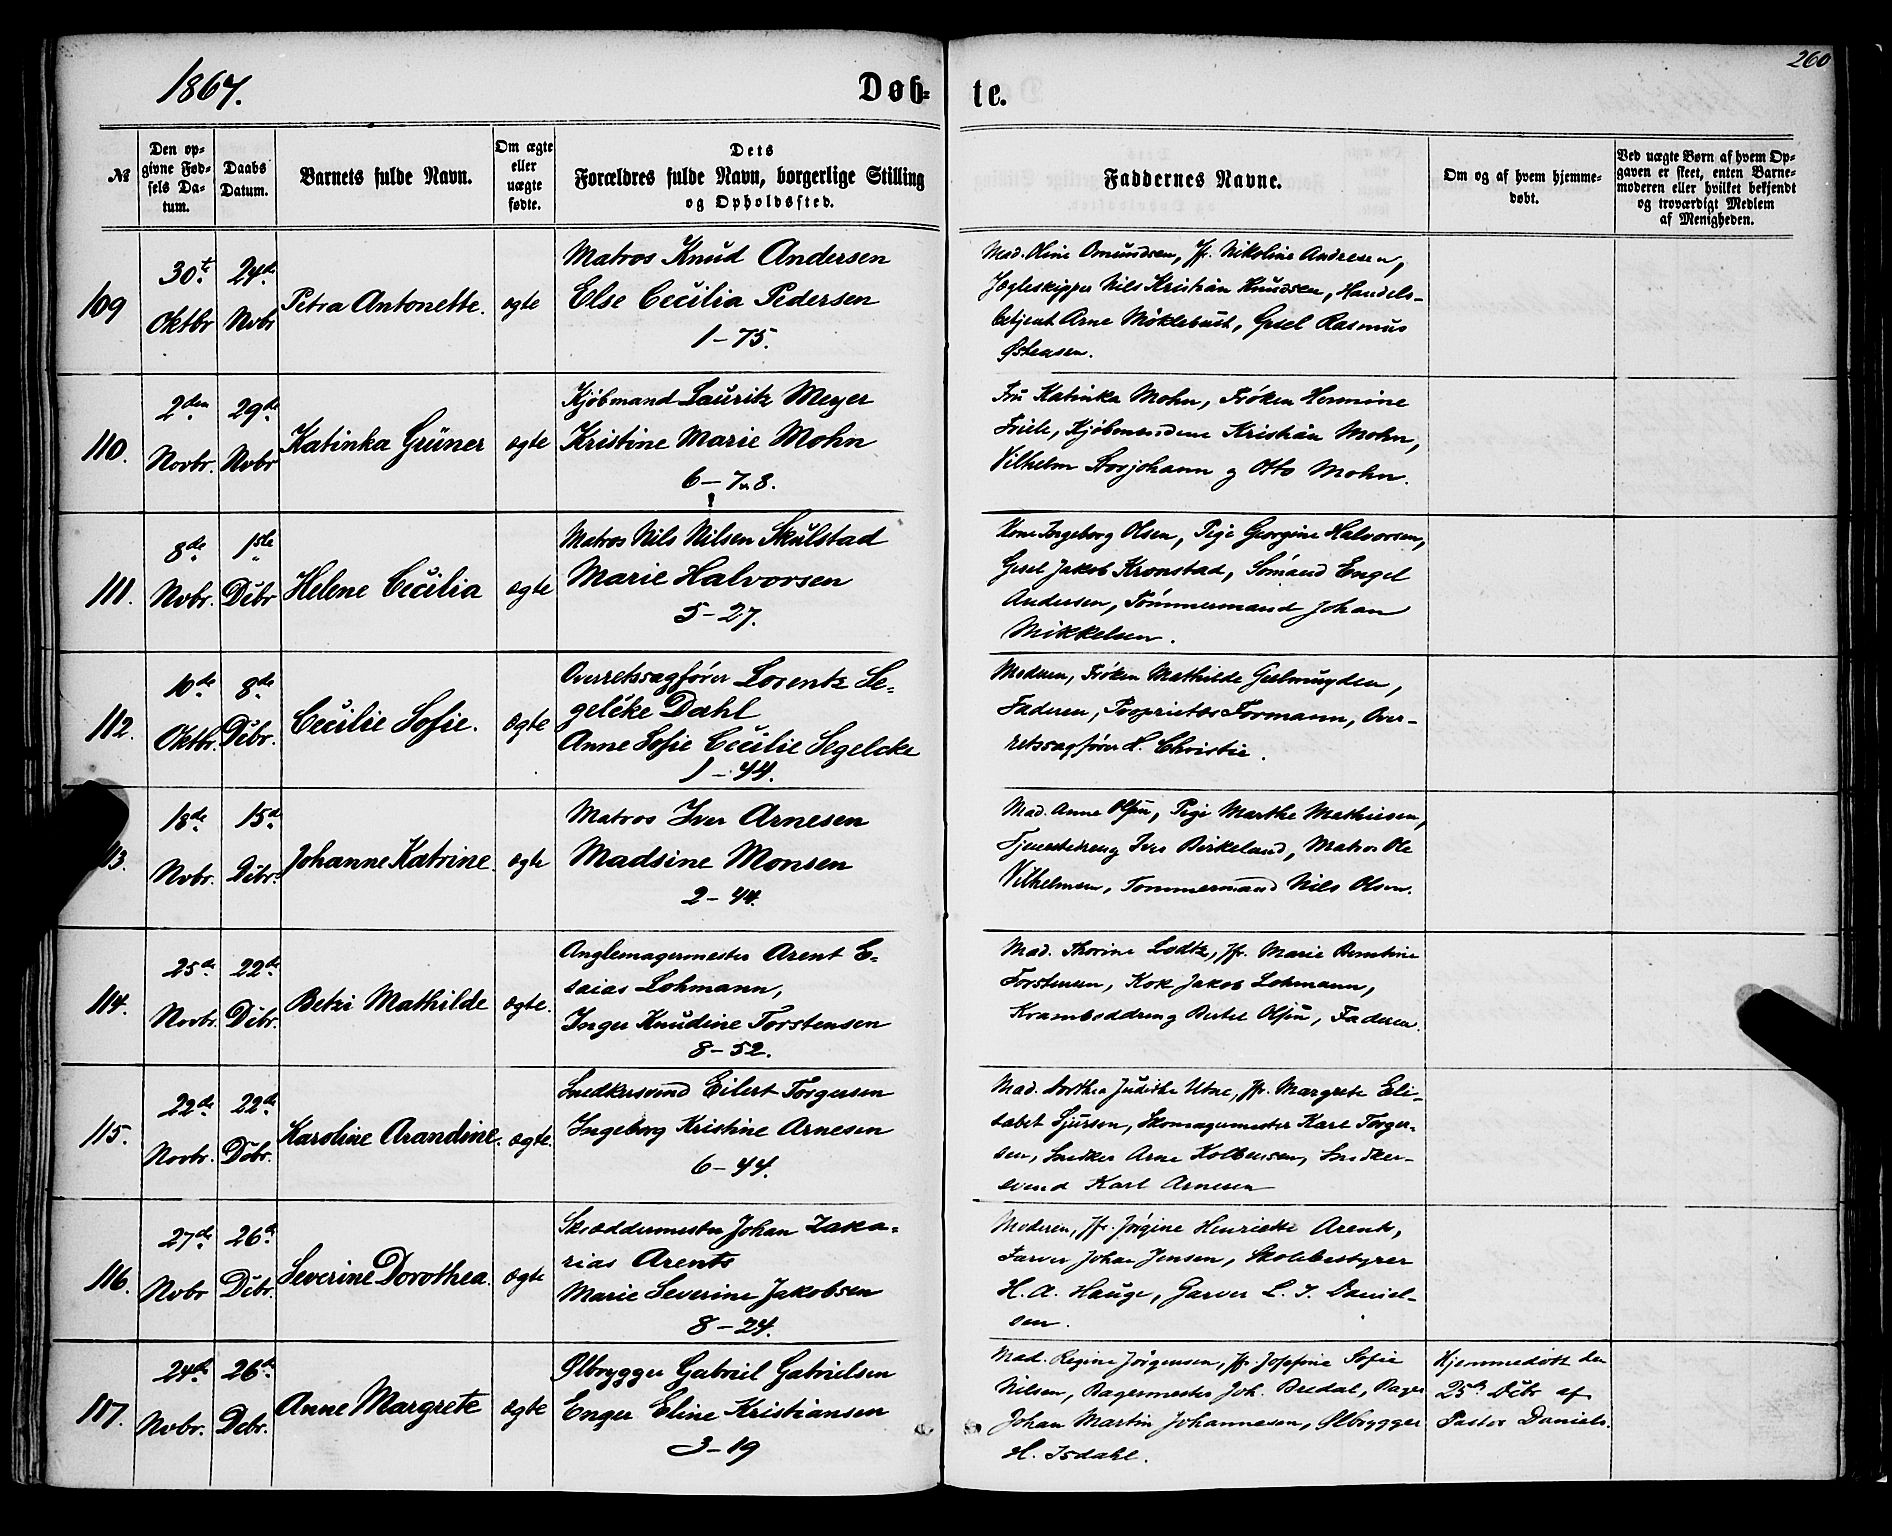 260
1867.
Døb-
te.
№
Den op-
givne Fød-
sels Da-
tum.
Daabs
Datum.
Barnets fulde Navn.
Om ægte
eller
uægte
fødte.
Dets
Forældres fulde Navn, borgerlige Stilling
og Opholdssted.
Faddernes Navne.
Om og af hvem hjemme-
døbt.
Ved uægte Børn af hvem Op-
gaven er skeet, enten Barne-
moderen eller hvilket bekjendt
og troværdigt Medlem
af Menigheden.
109
30te
Oktbr
24de
Nvbr
Petra Antonette.
ægte
Matros Knud Andersen
Else Cecilia Pedersen
1-75.
Mad. Oline Omundsen, Jfr. Nikoline Andresen,
Jægteskipper Nils Kristian Knudsen, Handels-
betjent Arne Møklebust, Gesel Rasmus
Østensen.
110.
2den
Novbr.
29de
Nvbr
Katinka Grüner
ægte
Kjøbmand Lauritz Meyer
Kristine Marie Mohn
6-7 8.
Fru Katinka Mohn, Frøken Hermine
Friele, Kjøbmændene Kristian Mohn,
Vilhelm Storjohann og Otto Mohn.
111.
8de
Nvbr.
1ste
Dcbr
Helene Cecilia
ægte
Matros Nils Nilsen Skulstad
Marie Halvorsen
5-27.
Kone Ingeborg Olsen, Pige Georgine Halvorsen,
Gesel Jakob Kronstad, Sømand Engel
Andersen, Tømmermand Johan
Mikkelsen.
112.
10de
Oktbr.
8de
Dcbr.
Cecilie Sofie.
ægte
Overretssagfører Lorentz Se-
gelcke Dahl
Anne Sofie Cecilie Segelcke
1-44.
Moderen, Frøken Mathilde Geelmuyden,
Faderen, Proprietær Formann, Over-
retssagfører H. Christie.
113.
18de
Nvbr.
15de
Dcbr.
Johanne Katrine.
ægte
Matros Iver Arnesen
Madsine Monsen
2-44.
Mad. Anne Olsen, Pige Marthe Mathiesen,
Tjenestedreng Iver Birkeland, Matros Ole
Vilhelmsen, Tømmermand Nils Olsen.
114.
25de
Novbr.
22de
Dcbr.
Betzi Mathilde
ægte.
Anglemagermester Arent E-
saias Lohmann,
Inger Knudine Torstensen
8-52.
Mad. Thorine Lodtz, Jfr. Marie Berntine
Torstensen, Kok Jakob Lohmann,
Kramboddreng Bertel Olsen, Faderen.
115.
22de
Novbr.
22de
Dcbr.
Karoline Arandine.
ægte.
Snedkersvend Eilert Torgersen
Ingeborg Kristine Arnesen
6-44.
Mad. Dorthea Judithe Utne, Jfr. Margrete Eli-
sabet Sjursen, Skomagermester Karl Torger-
sen, Snedker Arne Kolbensen, Snedker-
svend Karl Arnesen
116.
27de
Nvbr
26de
Dcbr.
Severine Dorothea.
ægte
Skræddermester Johan Zaka-
rias Arents
Marie Severine Jakobsen
8-24.
Moderen, Jfr. Jørgine Henrikke Arents,
Farver Johan Jensen, Skolebestyrer
H. A. Hauge, Garver L. J. Daniel-
sen.
117.
24de
Nvbr.
26de
Dcbr.
Anne Margrete
ægte
Ølbrygger Gabriel Gabrielsen
Enger Eline Kristiansen
3-19
Mad. Regine Jørgensen, Jfr. Josefine Sofie
Nilsen, Bagermester Joh. Bredal, Bager
Johan Martin Johannesen, Ølbrygger
H. Isdahl.
Hjemmedøbt den
25de Dcbr af
Pastor Daniels.